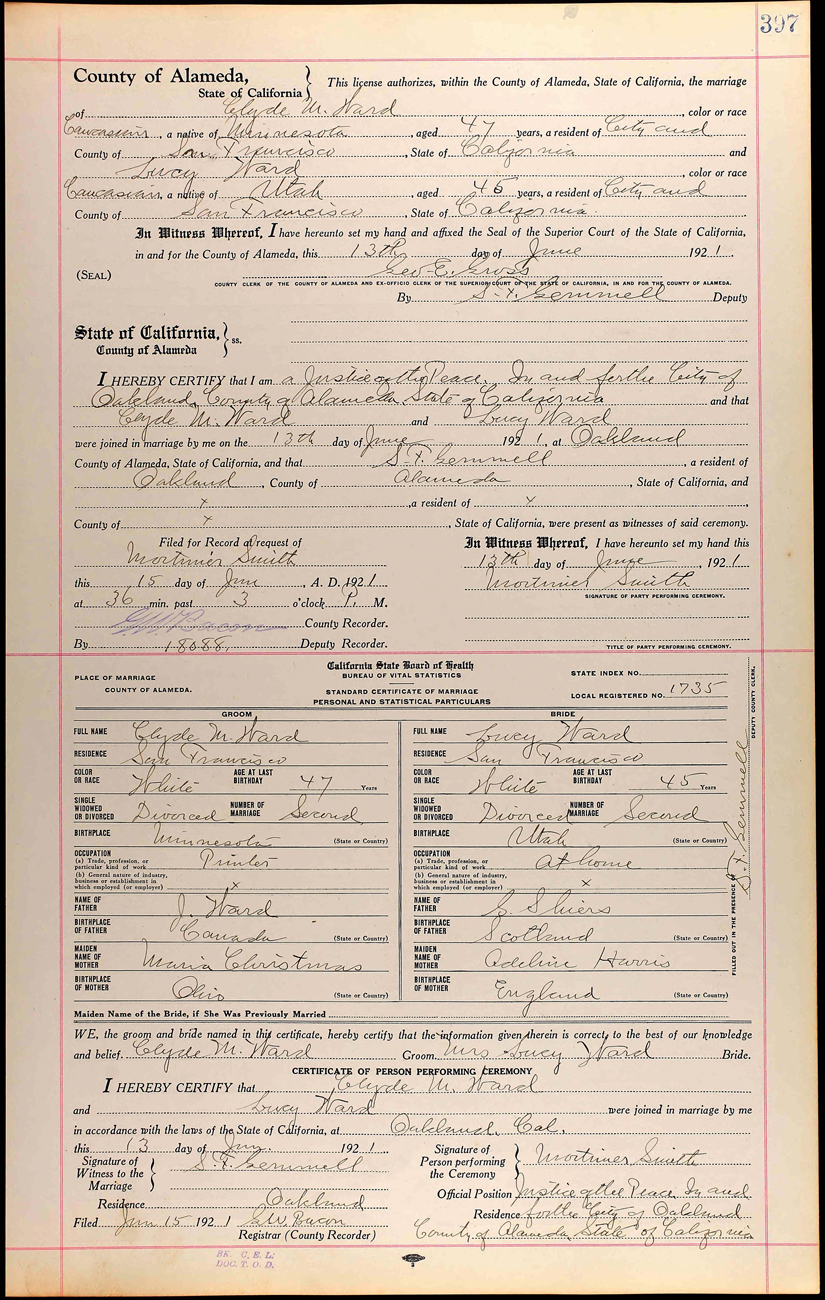 397
County of Alameda,
State of California
This license authorizes, within the County of Alameda, State of California, the marriage
of Clyde M. Ward, color or race
Caucasian, a native of Minnesota, aged 47 years, a resident of City and
County of San Francisco, State of California and
Lucy Ward, color or race
Caucasian, a native of Utah, aged 45 years, a resident of City and
County of San Francisco, State of California.
In Witness Whereof, I have hereunto set my hand and affixed the Seal of the Superior Court of the State of California,
in and for the County of Alameda, this 13th day of June 1921.
(SEAL) Geo E. Gross
COUNTY CLERK OF THE COUNTY OF ALAMEDA AND EX-OFFICIO CLERK OF THE SUPERIOR COURT OF THE STATE OF CALIFORNIA, IN AND FOR THE COUNTY OF ALAMEDA.
By S. F. Gemmell Deputy
State of California,
County of Alameda
ss.
I HEREBY CERTIFY that I am a Justice of the Peace, In and for the City of
Oakland, County of Alameda, State of California and that
Clyde M. Ward and Lucy Ward
were joined in marriage by me on the 13th day of June 1921, at Oakland
County of Alameda, State of California, and that S. F. Gemmell, a resident of
Oakland, County of Alameda, State of California, and
x, a resident of x,
County of x, State of California, were present as witnesses of said ceremony.
Filed for Record at request of
Mortimer Smith
this 15 day of Jun, A. D. 1921
at 36 min. past 3 o'clock P. M.
G.W. Bacon County Recorder.
By 18088, Deputy Recorder.
In Witness Whereof, I have hereunto set my hand this
13th day of June, 1921
Mortimer Smith
SIGNATURE OF PARTY PERFORMING CEREMONY.
TITLE OF PARTY PERFORMING CEREMONY.
PLACE OF MARRIAGE
COUNTY OF ALAMEDA.
California State Board of Health
BUREAU OF VITAL STATISTICS
STANDARD CERTIFICATE OF MARRIAGE
PERSONAL AND STATISTICAL PARTICULARS
STATE INDEX NO.
LOCAL REGISTERED NO. 1735
GROOM
FULL NAME Clyde M. Ward
RESIDENCE San Francisco
COLOR OR RACE White AGE AT LAST BIRTHDAY 47 Years
SINGLE WIDOWED OR DIVORCED Divorced NUMBER OF MARRIAGE Second
BIRTHPLACE Minnesota (State or Country)
OCCUPATION
(a) Trade, profession, or particular kind of work Printer
(b) General nature of industry, business or establishment in which employed (or employer) x
NAME OF FATHER J. Ward
BIRTHPLACE OF FATHER Canada (State or Country)
MAIDEN NAME OF MOTHER Maria Christmas
BIRTHPLACE OF MOTHER Ohio (State or Country)
BRIDE
FULL NAME Lucy Ward
RESIDENCE San Francisco
COLOR OR RACE White AGE AT LAST BIRTHDAY 45 Years
SINGLE WIDOWED OR DIVORCED Divorced NUMBER OF MARRIAGE Second
BIRTHPLACE Utah (State or Country)
OCCUPATION
(a) Trade, profession, or particular kind of work At home
(b) General nature of industry, business or establishment in which employed (or employer) x
NAME OF FATHER Shiers
BIRTHPLACE OF FATHER Scotland (State or Country)
MAIDEN NAME OF MOTHER Adeline Harris
BIRTHPLACE OF MOTHER England (State or Country)
FILLED OUT IN THE PRESENCE OF S. F. Gemmell DEPUTY COUNTY CLERK.
Maiden Name of the Bride, if She Was Previously Married
WE, the groom and bride named in this certificate, hereby certify that the information given therein is correct, to the best of our knowledge
and belief. Clyde M. Ward Groom Mrs Lucy Ward Bride.
CERTIFICATE OF PERSON PERFORMING CEREMONY
I HEREBY CERTIFY that Clyde M. Ward
and Lucy Ward were joined in marriage by me
in accordance with the laws of the State of California, at Oakland, Cal.
this 13 day of Jun. 1921.
Signature of Witness to the Marriage S. F. Gemmell
Residence Oakland
Filed Jun 15 1921 G.W. Bacon
Registrar (County Recorder)
Signature of Person performing the Ceremony Mortimer Smith
Official Position Justice of the Peace In and
Residence for the City of Oakland
County of Alameda, State of California
BK. C. E. L.
DOC. T. O. D.